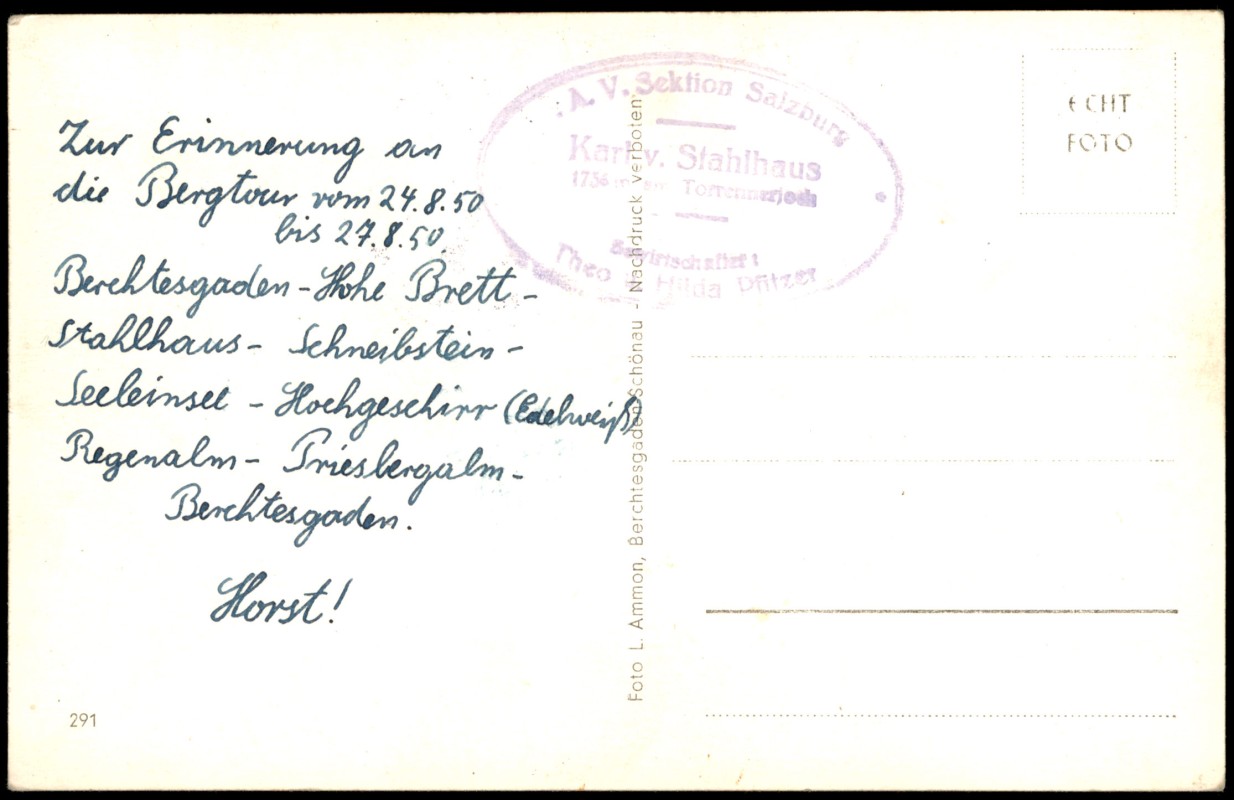 Zur Erinnerung an
die Bergtour vom 24.8.50
bis 27.8.50
Berchtesgaden - Hohe Brett -
Stahlhaus - Schneibstein -
Seeleinsee - Hochgeschirr (Edelweiß)
Regenalm - Priesbergalm -
Berchtesgaden.
Horst!
291
Foto L. Ammon, Berchtesgaden-Schönau - Nachdruck verboten
A. V. Sektion Salzburg
Karl v. Stahlhaus
1736 m am Torrennerjoch
Bewirtschaftet:
Theo & Hilda
ECHT
FOTO